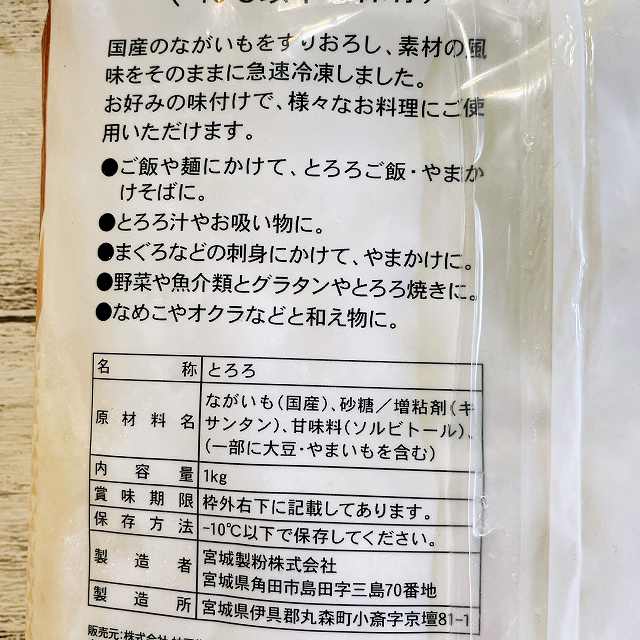 国産のながいもをすりおろし、素材の風
味をそのままに急速冷凍しました。
お好みの味付けで、様々なお料理にご使
用いただけます。
●ご飯や麺にかけて、とろろご飯・やまか
けそばに。
●とろろ汁やお吸い物に。
●まぐろなどの刺身にかけて、やまかけに。
●野菜や魚介類とグラタンやとろろ焼きに。
●なめこやオクラなどと和え物に。
名称 とろろ
原材料名 ながいも(国産)、砂糖/増粘剤(キ
サンタン)、甘味料(ソルビトール)、
(一部に大豆・やまいもを含む)
内容量 1kg
賞味期限 枠外右下に記載してあります。
保存方法 -10℃以下で保存してください。
製造者 宮城製粉株式会社
宮城県角田市島田字三島70番地
製造所 宮城県伊具郡丸森町小斎字京壇81-1
販売元:株式会社